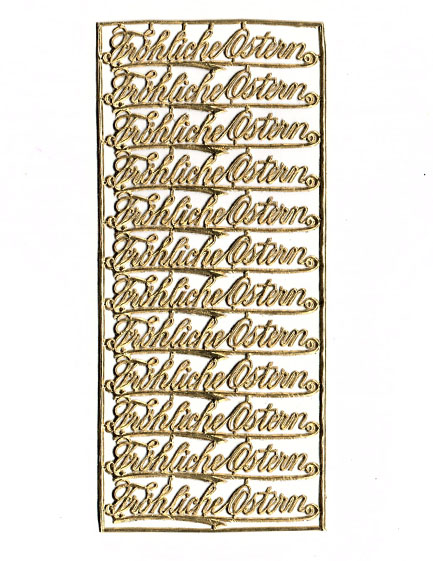 Fröhliche Ostern
Fröhliche Ostern
Fröhliche Ostern
Fröhliche Ostern
Fröhliche Ostern
Fröhliche Ostern
Fröhliche Ostern
Fröhliche Ostern
Fröhliche Ostern
Fröhliche Ostern
Fröhliche Ostern
Fröhliche Ostern